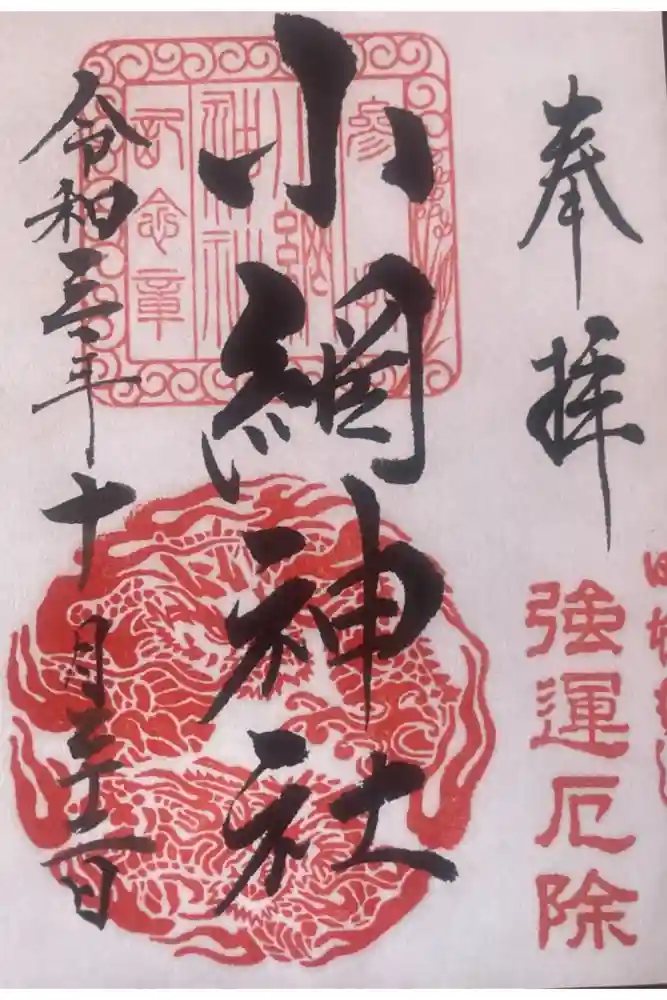 奉拝
強運厄除
小網神社
参拝
小網神社
記念章
令和三年十月三十一日